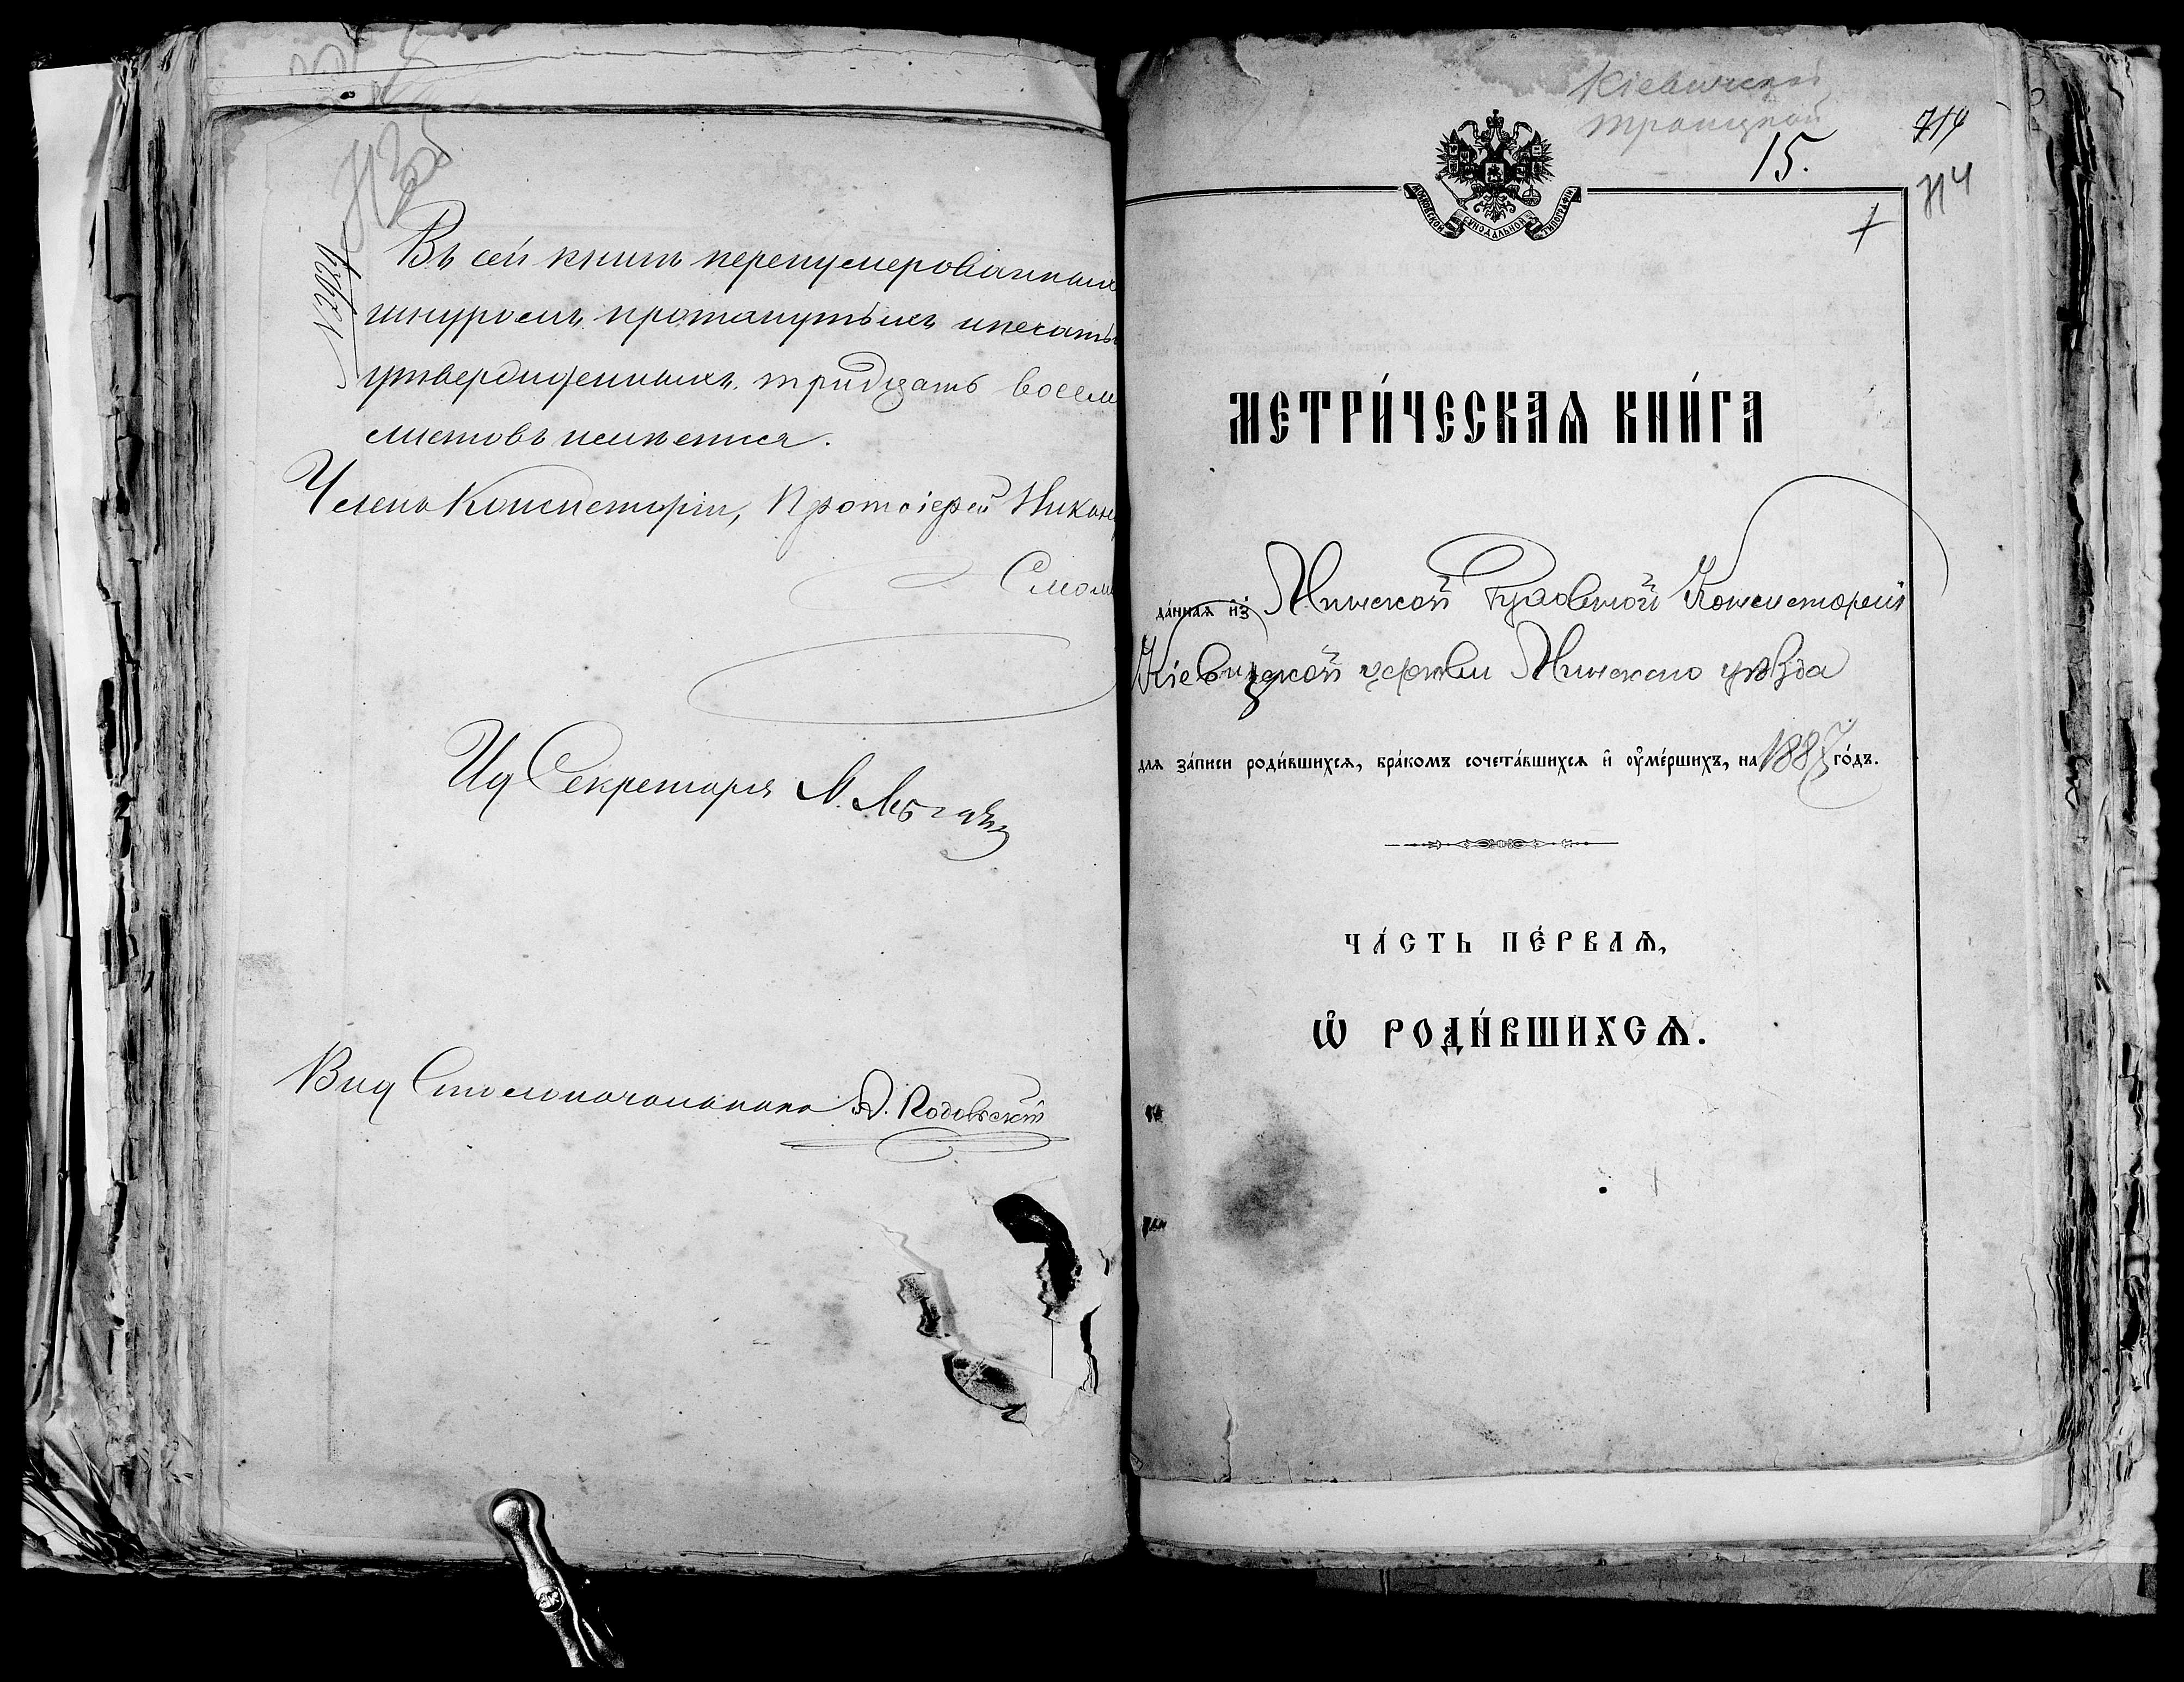 Въ сей книгѣ перенумерованныхъ
шнуромъ протянутыхъ и печатью
утвержденныхъ тридцать восемь
листовъ имѣется.
Членъ Консисторіи, Протоіерей Никан
Смол
И д Секретаря
Вид Столоначальника
Кіевичской
Троицкой
15.
714
714
МОСКОВСКОЙ СѴНОДАЛЬНОЙ ТИПОГРАФІИ
МЕТРИ́ЧЕСКАѦ КНИ́ГА
да́ннаѧ и҆з̾ Минской Духовной Консисторіи
Кіевицкой церкви Минскаго уѣзда
для за́писи роди́вшихсѧ, бра́комъ сочета́вшихсѧ и҆ ᲂу҆ме́ршихъ, на 1887 го́дъ.
ЧА́СТЬ ПЕ́РВАѦ,
Ѽ РОДИ́ВШИХСѦ.